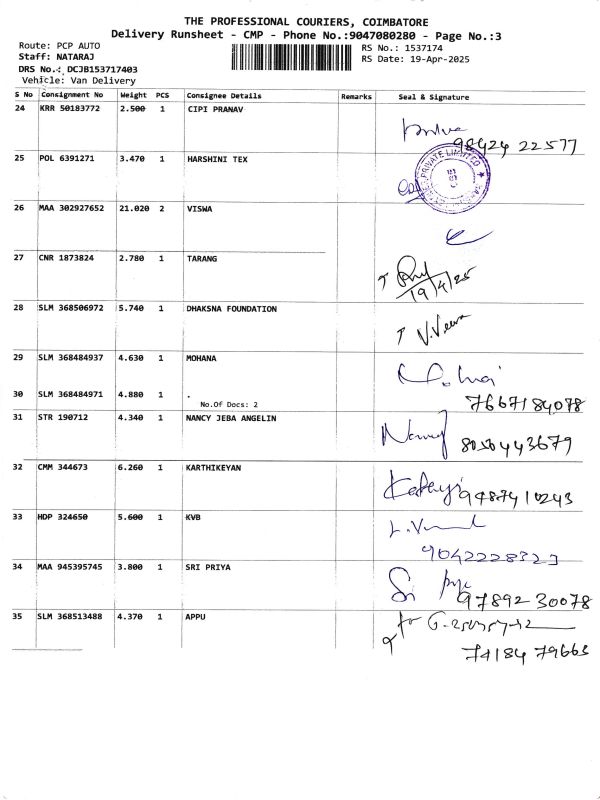 THE PROFESSIONAL COURIERS, COIMBATORE
Delivery Runsheet - CMP - Phone No.:9047080280 - Page No.:3
Route: PCP AUTO
RS No.: 1537174
Staff: NATARAJ
RS Date: 19-Apr-2025
DRS No.: DCJB153717403
Vehicle: Van Delivery
S No Consignment No Weight PCS Consignee Details Remarks Seal & Signature
24 KRR 50183772 2.500 1 CIPI PRANAV
98424 22577
25 POL 6391271 3.470 1 HARSHINI TEX
PRIVATE LIMITED
26 MAA 302927652 21.020 2 VISWA
27 CNR 1873824 2.780 1 TARANG
19/4/25
28 SLM 368506972 5.740 1 DHAKSNA FOUNDATION
V.Veera
29 SLM 368484937 4.630 1 MOHANA
30 SLM 368484971 4.880 1 .
No.Of Docs: 2
7667184078
31 STR 190712 4.340 1 NANCY JEBA ANGELIN
Nancy 8050443679
32 CMM 344673 6.260 1 KARTHIKEYAN
9487410243
33 HDP 324650 5.600 1 KVB
9042228323
34 MAA 945395745 3.800 1 SRI PRIYA
Sri Priya
97892 30078
35 SLM 368513488 4.370 1 APPU
74184 79663